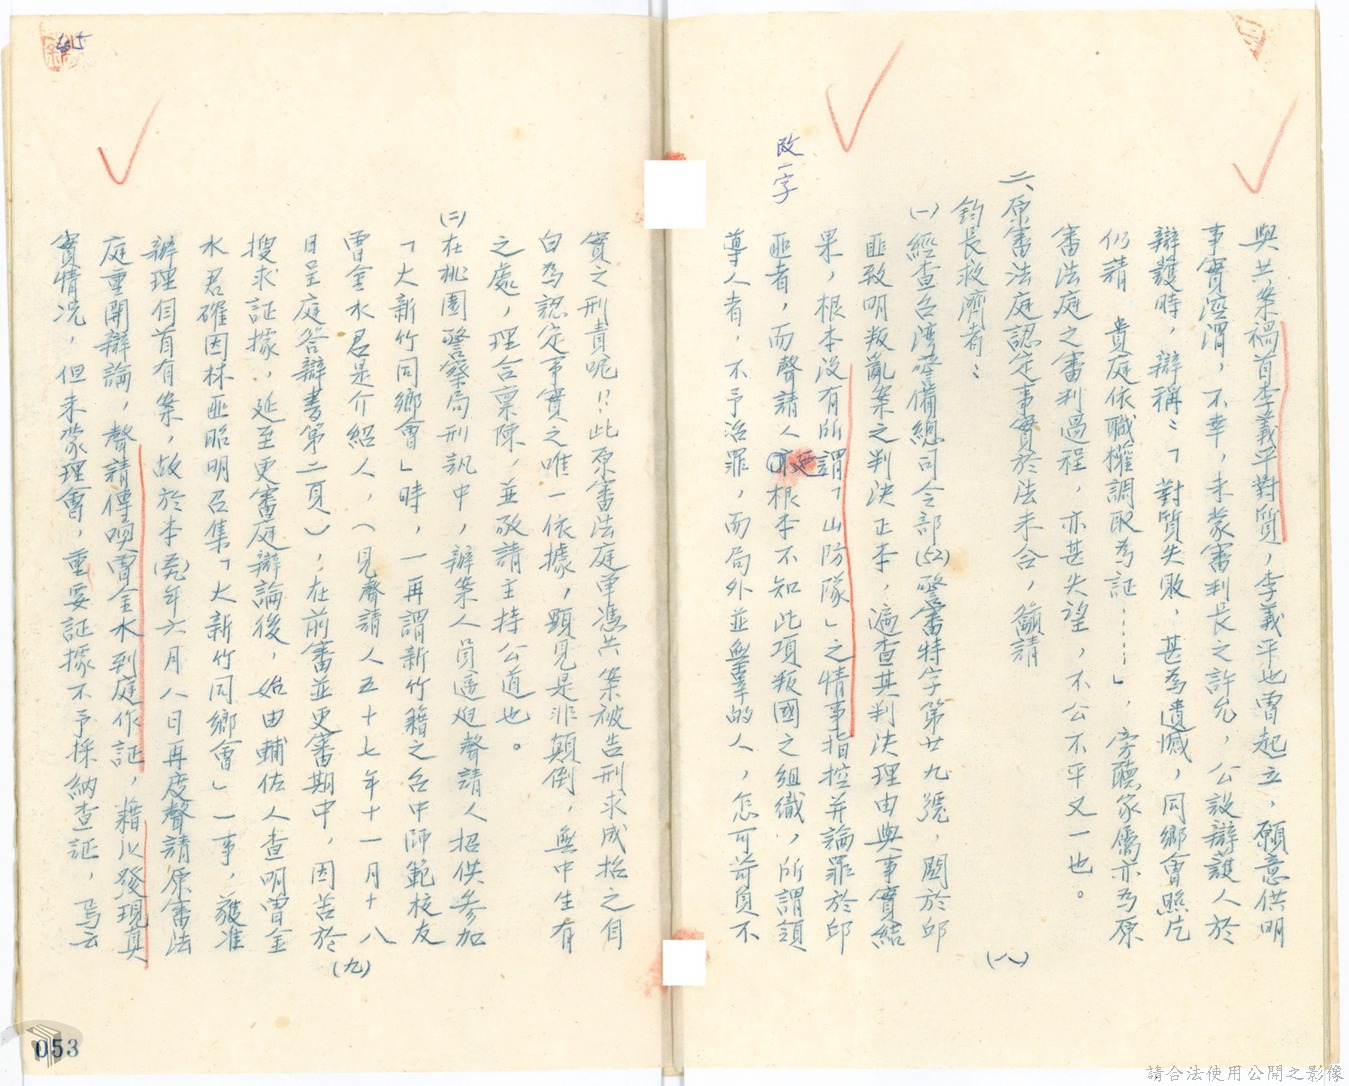 與共案禍首李義平對質，李義平也曾起立，願意供明
事實澄謂，不幸，未蒙審判長之許允，公設辯護人於
辯護時，辯稱：「對質失敗，甚為遺憾，同鄉會照片
仍請　貴庭依職權調取為証……」，旁聽家屬亦為原
審法庭之審判過程，亦甚失望，不公不平又一也。
二、原審法庭認定事實於法未合，籲請
鈞長救濟者：
(一)經查台灣警備總司令部(52)警審特字第廿九號，關於邱
匪致明叛亂案之判決正本，遍查其判決理由與事實結
果，根本沒有所謂「山防隊」之情事指控并論罪於邱
匪者，而聲請人更根本不知此項叛國之組織，所謂領
導人者，不予治罪，而局外並無辜的人，怎可荷負不
改一字
(八)
實之刑責呢!?此原審法庭單憑共案被告刑求成招之自
白為認定事實之唯一依據，顯見是非顛倒，無中生有
之處，理合稟陳，並敬請主持公道也。
(二)在桃園警察局刑訊中，辦案人員逼迫聲請人招供參加
「大新竹同鄉會」時，一再謂新竹籍之台中師範校友
曾金水君是介紹人，(見聲請人五十七年十一月十八
日呈庭答辯書第二頁)，在前審並更審期中，因苦於
搜求証據，延至更審庭辯論後，始由輔佐人查明曾金
水君確因林匪昭明召集「大新竹同鄉會」一事，獲准
辦理自首有案，故於本(59)年六月八日再度聲請原審法
庭重開辯論，聲請傳喚曾金水到庭作証，藉以發現真
實情況，但未蒙理會，重要証據不予採納查証，焉云
(九)
053
請合法使用公開之影像